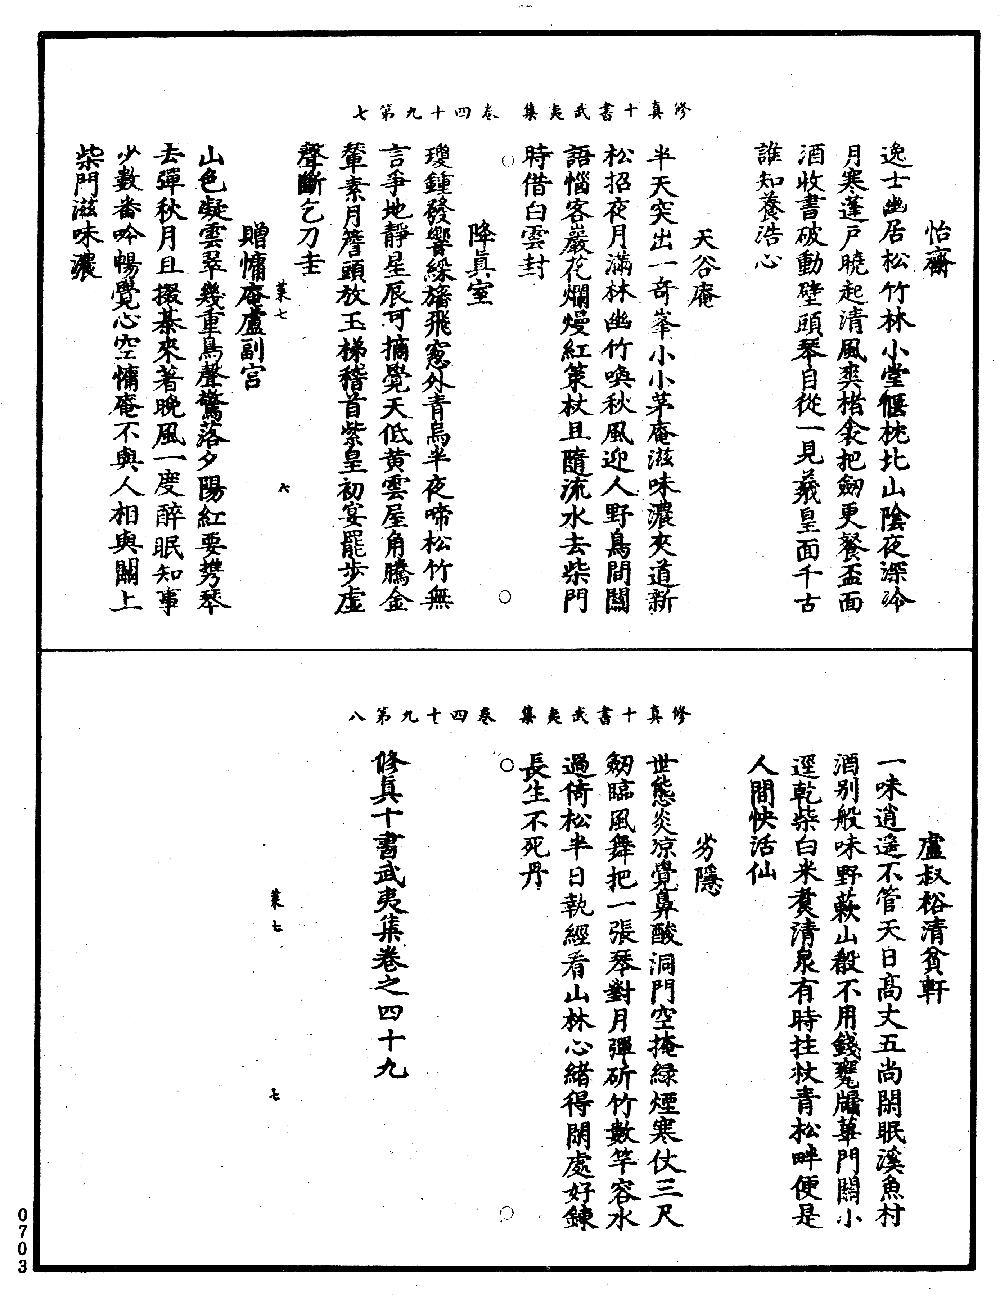 修真十書武夷集　卷四十九第七
怡齋
逸士幽居松竹林小堂偃枕北山陰夜深冷
月寒蓬戶曉起清風爽楮衾把劒更餐盃面
酒收書破動壁頭琴自從一見羲皇面千古
誰知養浩心
天谷庵
半天突出一奇峯小小茅庵滋味濃夾道新
松招夜月滿林幽竹喚秋風迎人野鳥間關
語惱客巖花爛熳紅策杖且隨流水去柴門
時借白雲封
降真室
瓊鍾發響綵旛飛窓外青鳥半夜啼松竹無
言爭地靜星辰可摘覺天低黄雲屋角騰金
輦素月簷頭放玉梯稽首紫皇初宴罷步虛
聲斷乞刀圭
菜七
六
贈慵庵盧副宮
山色凝雲翠幾重鳥聲驚落夕陽紅要携琴
去彈秋月且撥棊來著晚風一度醉眠知事
少數番吟暢覺心空慵庵不與人相與關上
柴門滋味濃
修真十書武夷集　卷四十九第八
盧叔裕清貧軒
一味逍遥不管天日高丈五尚閑眠溪魚村
酒别般味野蔌山殽不用錢甕牖蓽門關小
逕乾柴白米煑清泉有時拄杖青松畔便是
人間快活仙
劣隱
世態炎凉覺鼻酸洞門空掩緑煙寒仗三尺
劒臨風舞把一張琴對月彈斫竹數竿容水
過倚松半日執經看山林心緒得閑處好鍊
長生不死丹
修真十書武夷集卷之四十九
菜七
七
0703